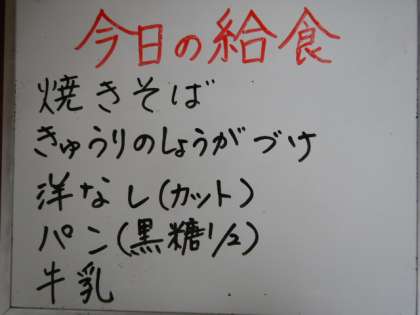 今日の給食
焼きそば
きゅうりのしょうがづけ
洋なし(カット)
パン(黒糖1/2)
牛乳